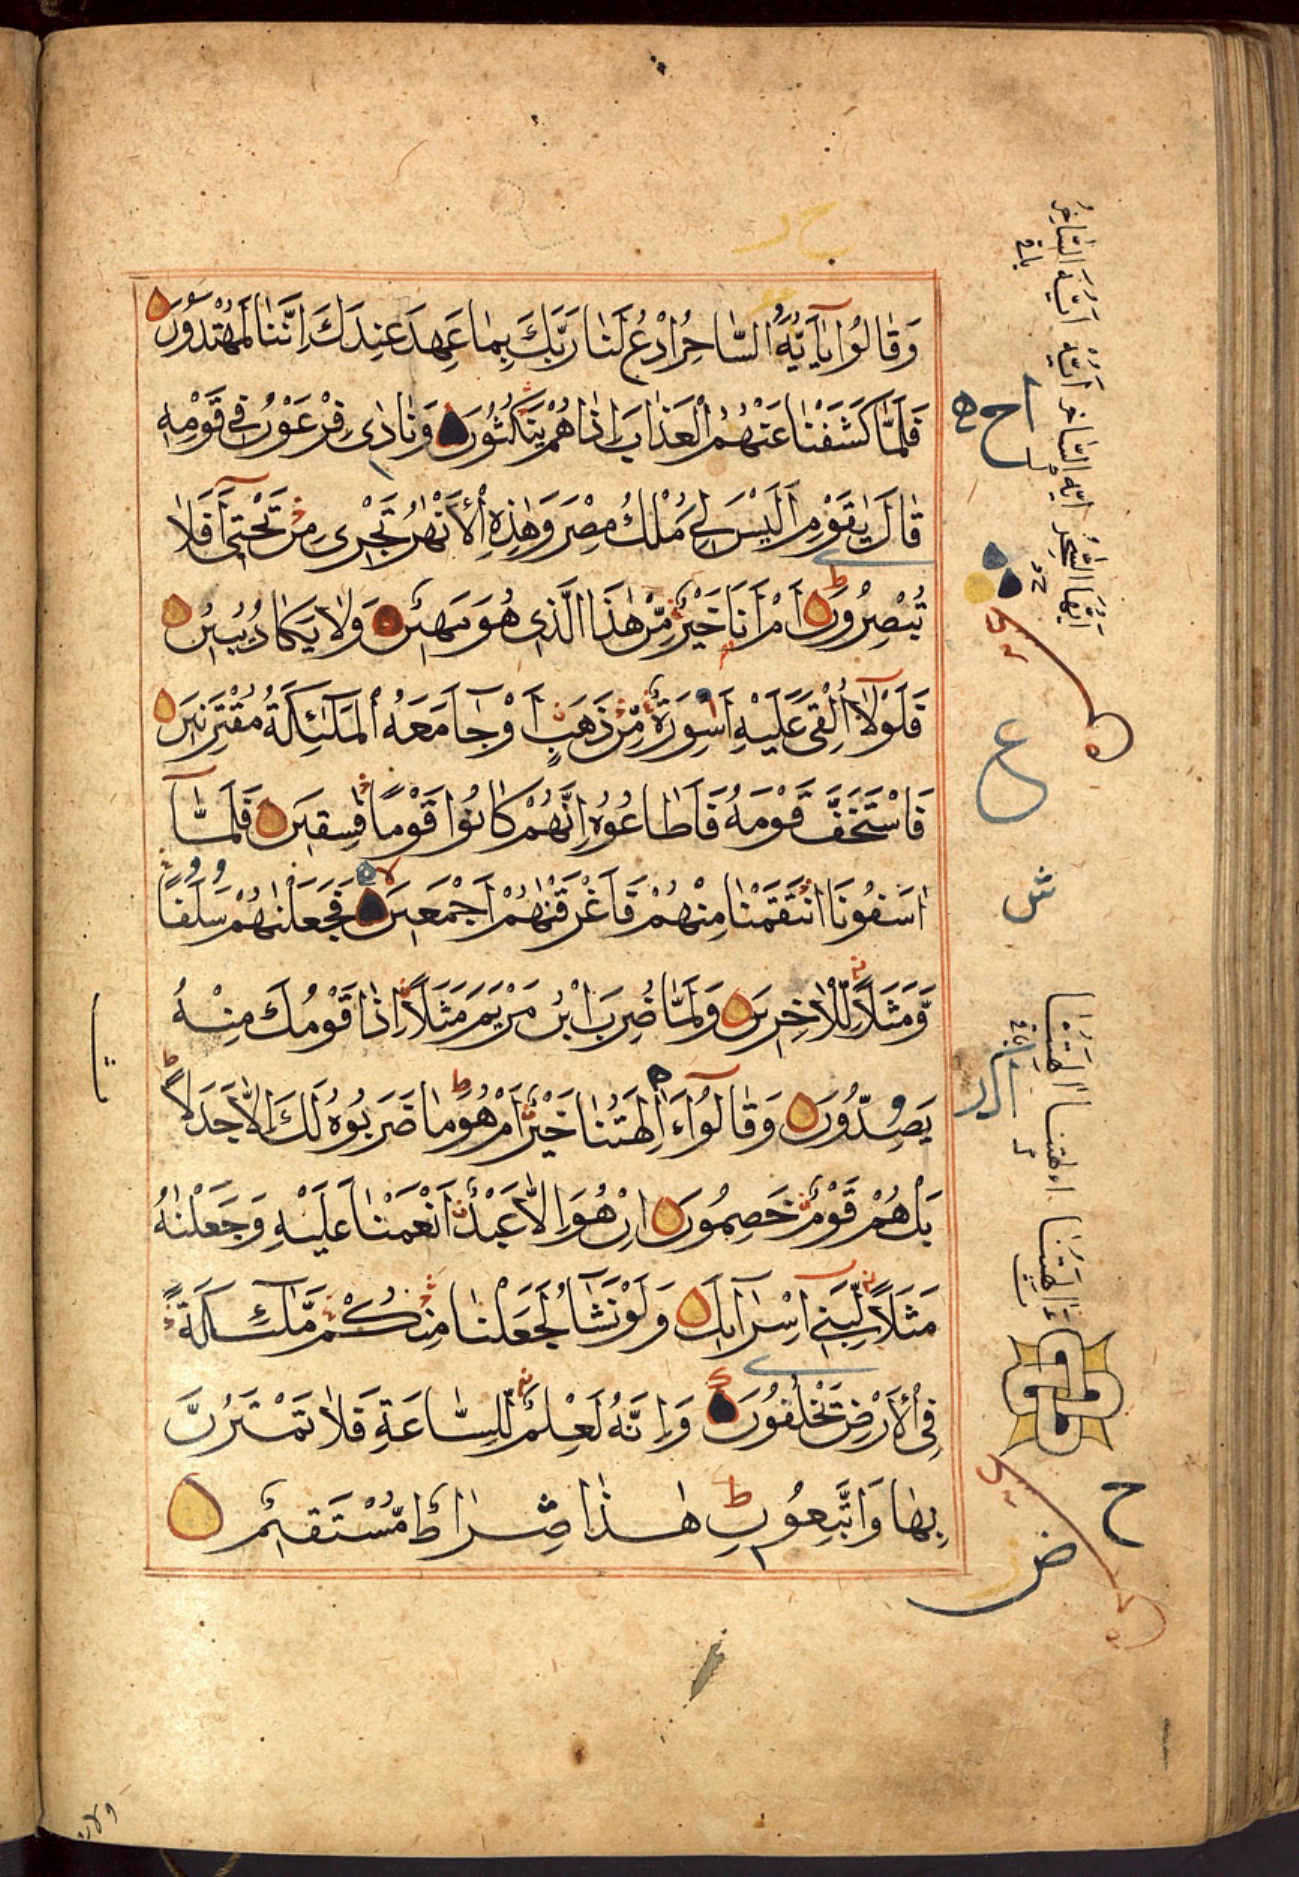 وَقَالُوا يَا أَيُّهَ السَّاحِرُ ادْعُ لَنَا رَبَّكَ بِمَا عَهِدَ عِنْدَكَ اِنَّنَا لَمُهْتَدُونَ
فَلَمَّا كَشَفْنَا عَنْهُمُ الْعَذَابَ اِذَا هُمْ يَنْكُثُونَ وَنَادٰى فِرْعَوْنُ فِى قَوْمِهِ
قَالَ يٰقَوْمِ اَلَيْسَ لِى مُلْكُ مِصْرَ وَهٰذِهِ الْاَنْهٰرُ تَجْرِى مِنْ تَحْتِى اَفَلَا
تُبْصِرُونَ اَمْ اَنَا خَيْرٌ مِّنْ هٰذَا الَّذِى هُوَ مَهِينٌ وَلَا يَكَادُ يُبِينُ
فَلَوْلَا اُلْقِىَ عَلَيْهِ اَسْوِرَةٌ مِّنْ ذَهَبٍ اَوْ جَآءَ مَعَهُ الْمَلٰئِكَةُ مُقْتَرِنِينَ
فَاسْتَخَفَّ قَوْمَهُ فَاَطَاعُوهُ اِنَّهُمْ كَانُوا قَوْمًا فٰسِقِينَ فَلَمَّا
اٰسَفُونَا انْتَقَمْنَا مِنْهُمْ فَاَغْرَقْنٰهُمْ اَجْمَعِينَ فَجَعَلْنٰهُمْ سَلَفًا
وَّمَثَلًا لِّلْاٰخِرِينَ وَلَمَّا ضُرِبَ ابْنُ مَرْيَمَ مَثَلًا اِذَا قَوْمُكَ مِنْهُ
يَصِدُّونَ وَقَالُوا ءَاٰلِهَتُنَا خَيْرٌ اَمْ هُوَ مَا ضَرَبُوهُ لَكَ اِلَّا جَدَلًا
بَلْ هُمْ قَوْمٌ خَصِمُونَ اِنْ هُوَ اِلَّا عَبْدٌ اَنْعَمْنَا عَلَيْهِ وَجَعَلْنٰهُ
مَثَلًا لِّبَنِى اِسْرَآئِلَ وَلَوْ نَشَآءُ لَجَعَلْنَا مِنْكُمْ مَّلٰئِكَةً
فِى الْاَرْضِ يَخْلُفُونَ وَاِنَّهُ لَعِلْمٌ لِّلسَّاعَةِ فَلَا تَمْتَرُنَّ
بِهَا وَاتَّبِعُونِ هٰذَا صِرَاطٌ مُّسْتَقِيمٌ
ع
ش
ح
ض